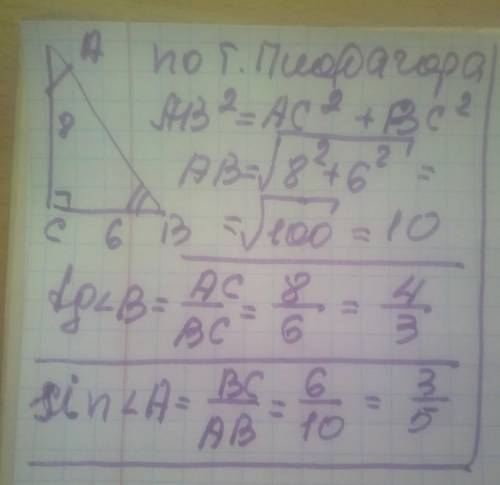 A
8
C 6 B
по т. Пифагора
AB² = AC² + BC²
AB = √8² + 6² =
= √100 = 10
tg∠B = AC/BC = 8/6 = 4/3
sin∠A = BC/AB = 6/10 = 3/5